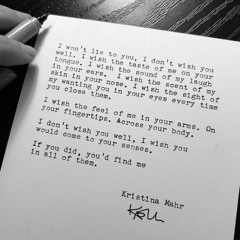 I won't lie to you, I don't wish you
well. I wish the taste of me on your
tongue. I wish the sound of my laugh
in your ears. I wish the scent of my
skin in your nose. I wish the sight of
my wanting you in your eyes every time
you close them.
I wish the feel of me in your arms. On
your fingertips. Across your body.
I don't wish you well, I wish you
would come to your senses.
If you did, you'd find me
in all of them.
Kristina Mahr